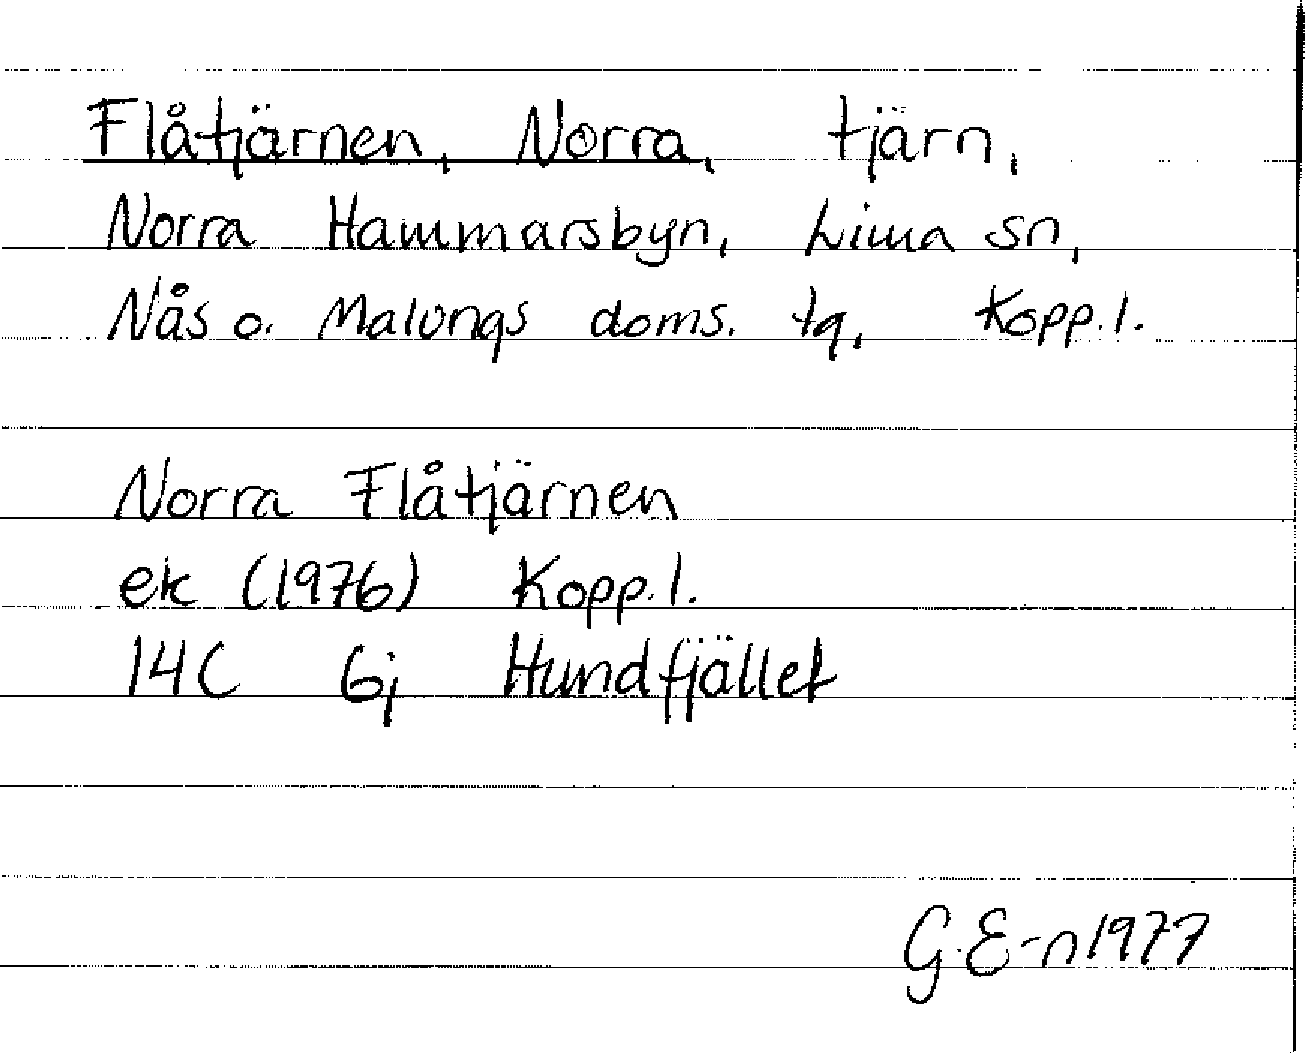 Flåtjärnen, Norra, tjärn,
Norra Hammarsbyn, Lima sn,
Nås o. Malungs doms. tg, Kopp.l.
Norra Flåtjärnen
ek (1976) Kopp.l.
14C 6j Hundfjället
G.E-n 1977